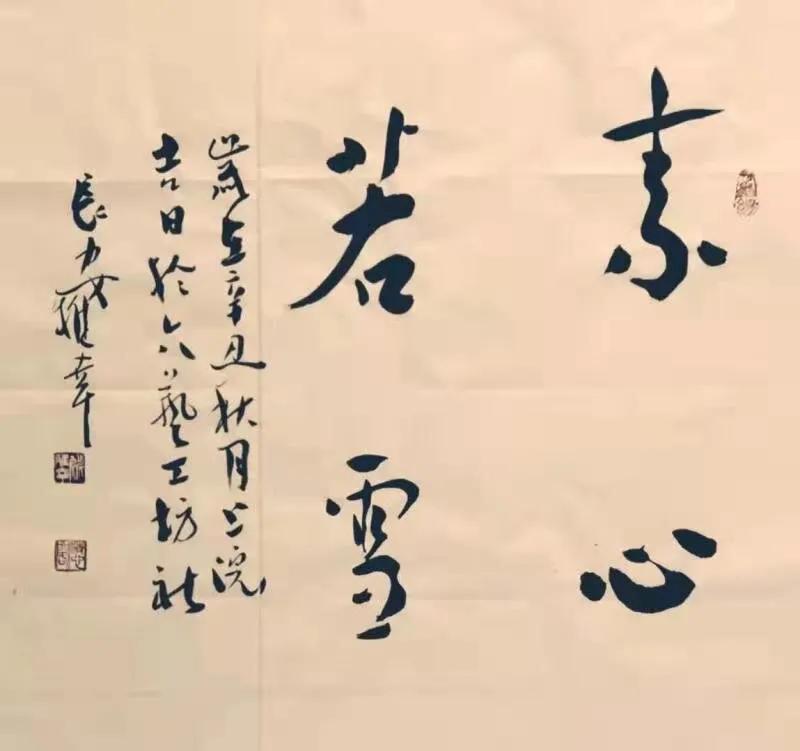 素心
若雪
歲在辛丑秋月上浣
吉日於六藝工坊社
長安